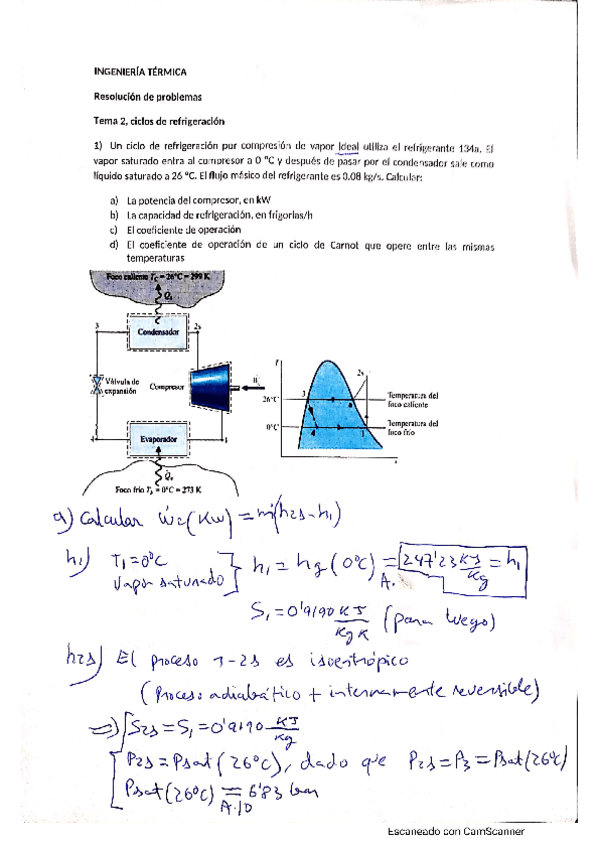 INGENIERÍA TÉRMICA
Resolución de problemas
Tema 2, ciclos de refrigeración
1) Un ciclo de refrigeración por compresión de vapor ideal utiliza el refrigerante 134a. El
vapor saturado entra al compresor a 0 °C y después de pasar por el condensador sale como
líquido saturado a 26 °C. El flujo másico del refrigerante es 0.08 kg/s. Calcular:
a) La potencia del compresor, en kW
b) La capacidad de refrigeración, en frigorías/h
c) El coeficiente de operación
d) El coeficiente de operación de un ciclo de Carnot que opere entre las mismas
temperaturas
Foco caliente Tc = 26°C = 299 K
Q̇s
3
Condensador
2s
Válvula de
expansión
Compresor
4
Evaporador
1
Q̇e
Foco frío Tf = 0°C = 273 K
T
2s
26°C
3
Temperatura del
foco caliente
0°C
4
1
Temperatura del
foco frío
s
a) Calcular ẇc(KW) = ṁ(h2s - h1)
h1) T1 = 0°C
Vapor saturado } h1 = hg (0°C) = 247'23 KJ/Kg = h1
A.
S1 = 0'9190 KJ/Kg K (para luego)
h2s) El proceso 1-2s es isoentrópico
(Proceso adiabático + internamente reversible)
=> S2s = S1 = 0'9190 KJ/Kg
P2s = Psat (26°C), dado que P2s = P3 = Psat(26°C)
Psat(26°C) = 6'83 bar
A.10
Escaneado con CamScanner